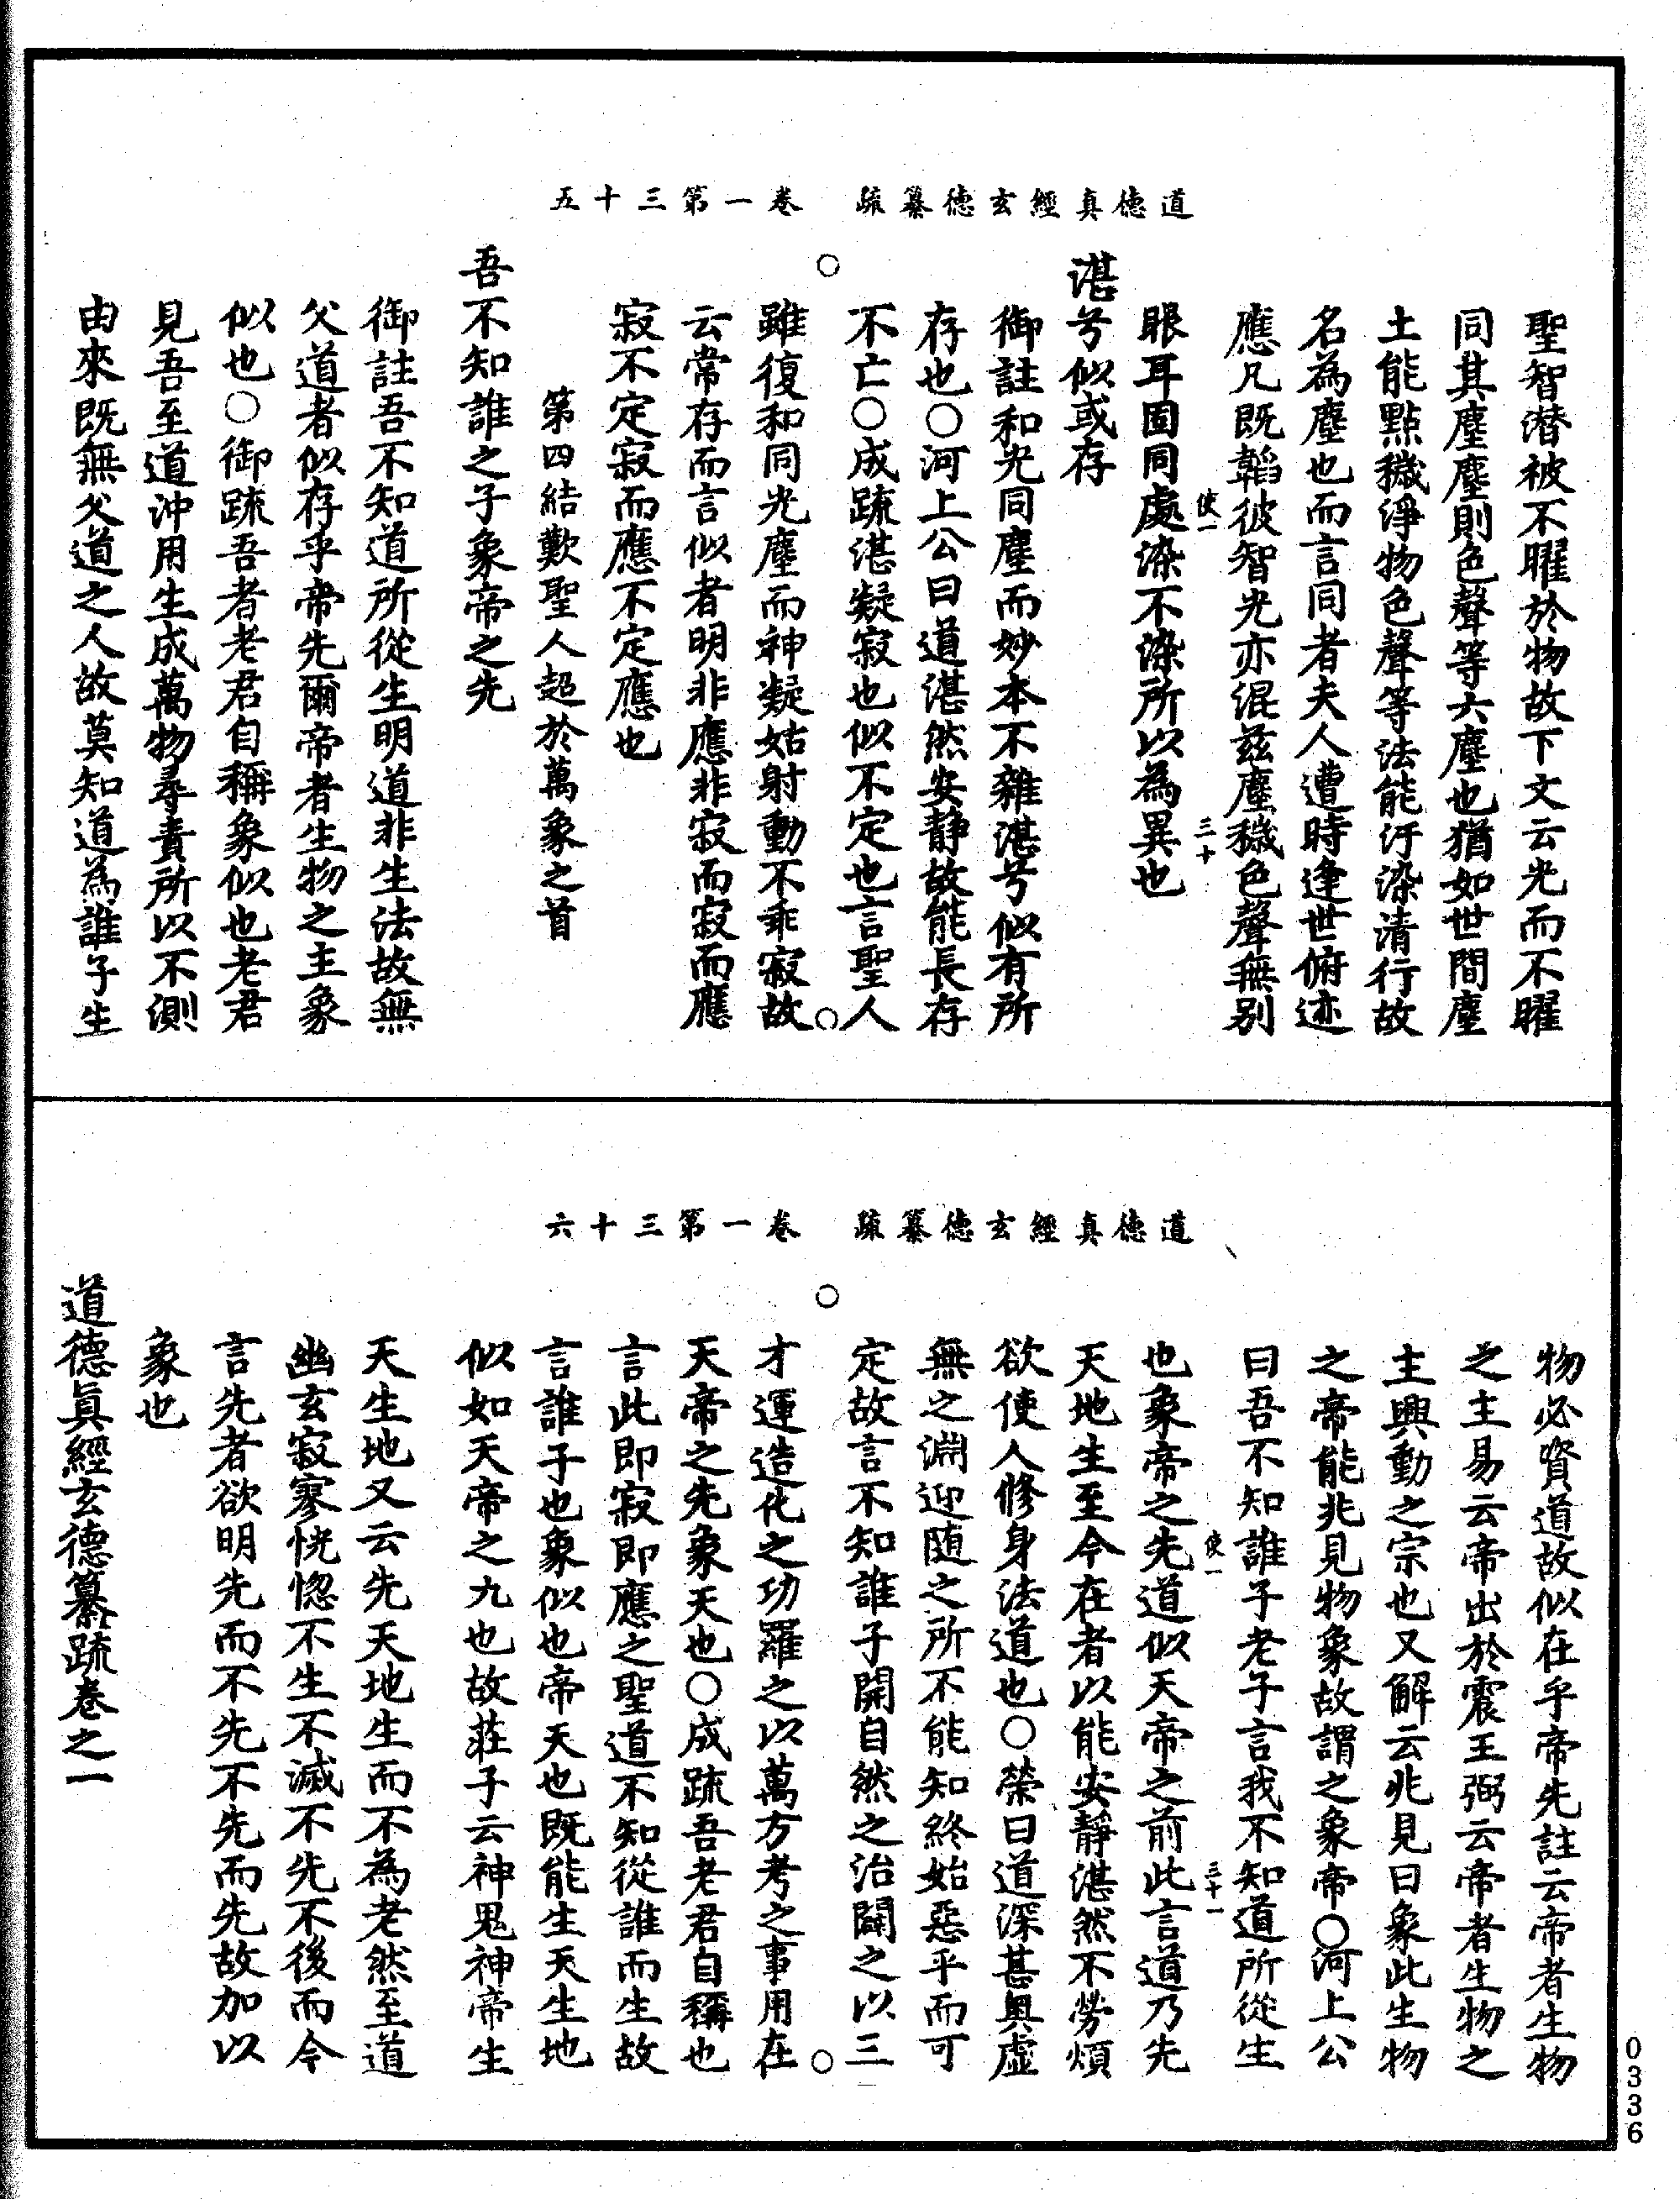 道德真經玄德纂疏　卷一第三十五
聖智潜被不曜於物故下文云光而不曜
同其塵塵則色聲等六塵也猶如世間塵
土能點穢淨物色聲等法能汙染清行故
名為塵也而言同者夫人遭時逢世俯迹
應凡既韜彼智光亦混兹塵穢色聲無別
使一　三十
眼耳固同處染不染所以為異也
湛兮似或存
御註和光同塵而妙本不雜湛兮似有所
存也○河上公曰道湛然安静故能長存
不亡○成疏湛凝寂也似不定也言聖人
雖復和同光塵而神凝姑射動不乖寂故
云常存而言似者明非應非寂而寂而應
寂不定寂而應不定應也
第四結歎聖人超於萬象之首
吾不知誰之子象帝之先
御註吾不知道所從生明道非生法故無
父道者似存乎帝先爾帝者生物之主象
似也○御疏吾者老君自稱象似也老君
見吾至道沖用生成萬物尋責所以不測
由來既無父道之人故莫知道為誰子生
道德真經玄德纂疏　卷一第三十六
物必資道故似在乎帝先註云帝者生物
之主易云帝出於震王弼云帝者生物之
主興動之宗也又解云兆見曰象此生物
之帝能兆見物象故謂之象帝○河上公
曰吾不知誰子老子言我不知道所從生
使一　三十一
也象帝之先道似天帝之前此言道乃先
天地生至今在者以能安靜湛然不勞煩
欲使人修身法道也○榮曰道深甚奧虛
無之淵迎随之所不能知終始惡乎而可
定故言不知誰子開自然之治闢之以三
才運造化之功羅之以萬方考之事用在
天帝之先象天也○成疏吾老君自稱也
言此即寂即應之聖道不知從誰而生故
言誰子也象似也帝天也既能生天生地
似如天帝之九也故莊子云神鬼神帝生
天生地又云先天地生而不為老然至道
幽玄寂寥恍惚不生不滅不先不後而今
言先者欲明先而不先不先而先故加以
象也
道德眞經玄德纂疏卷之一
0336